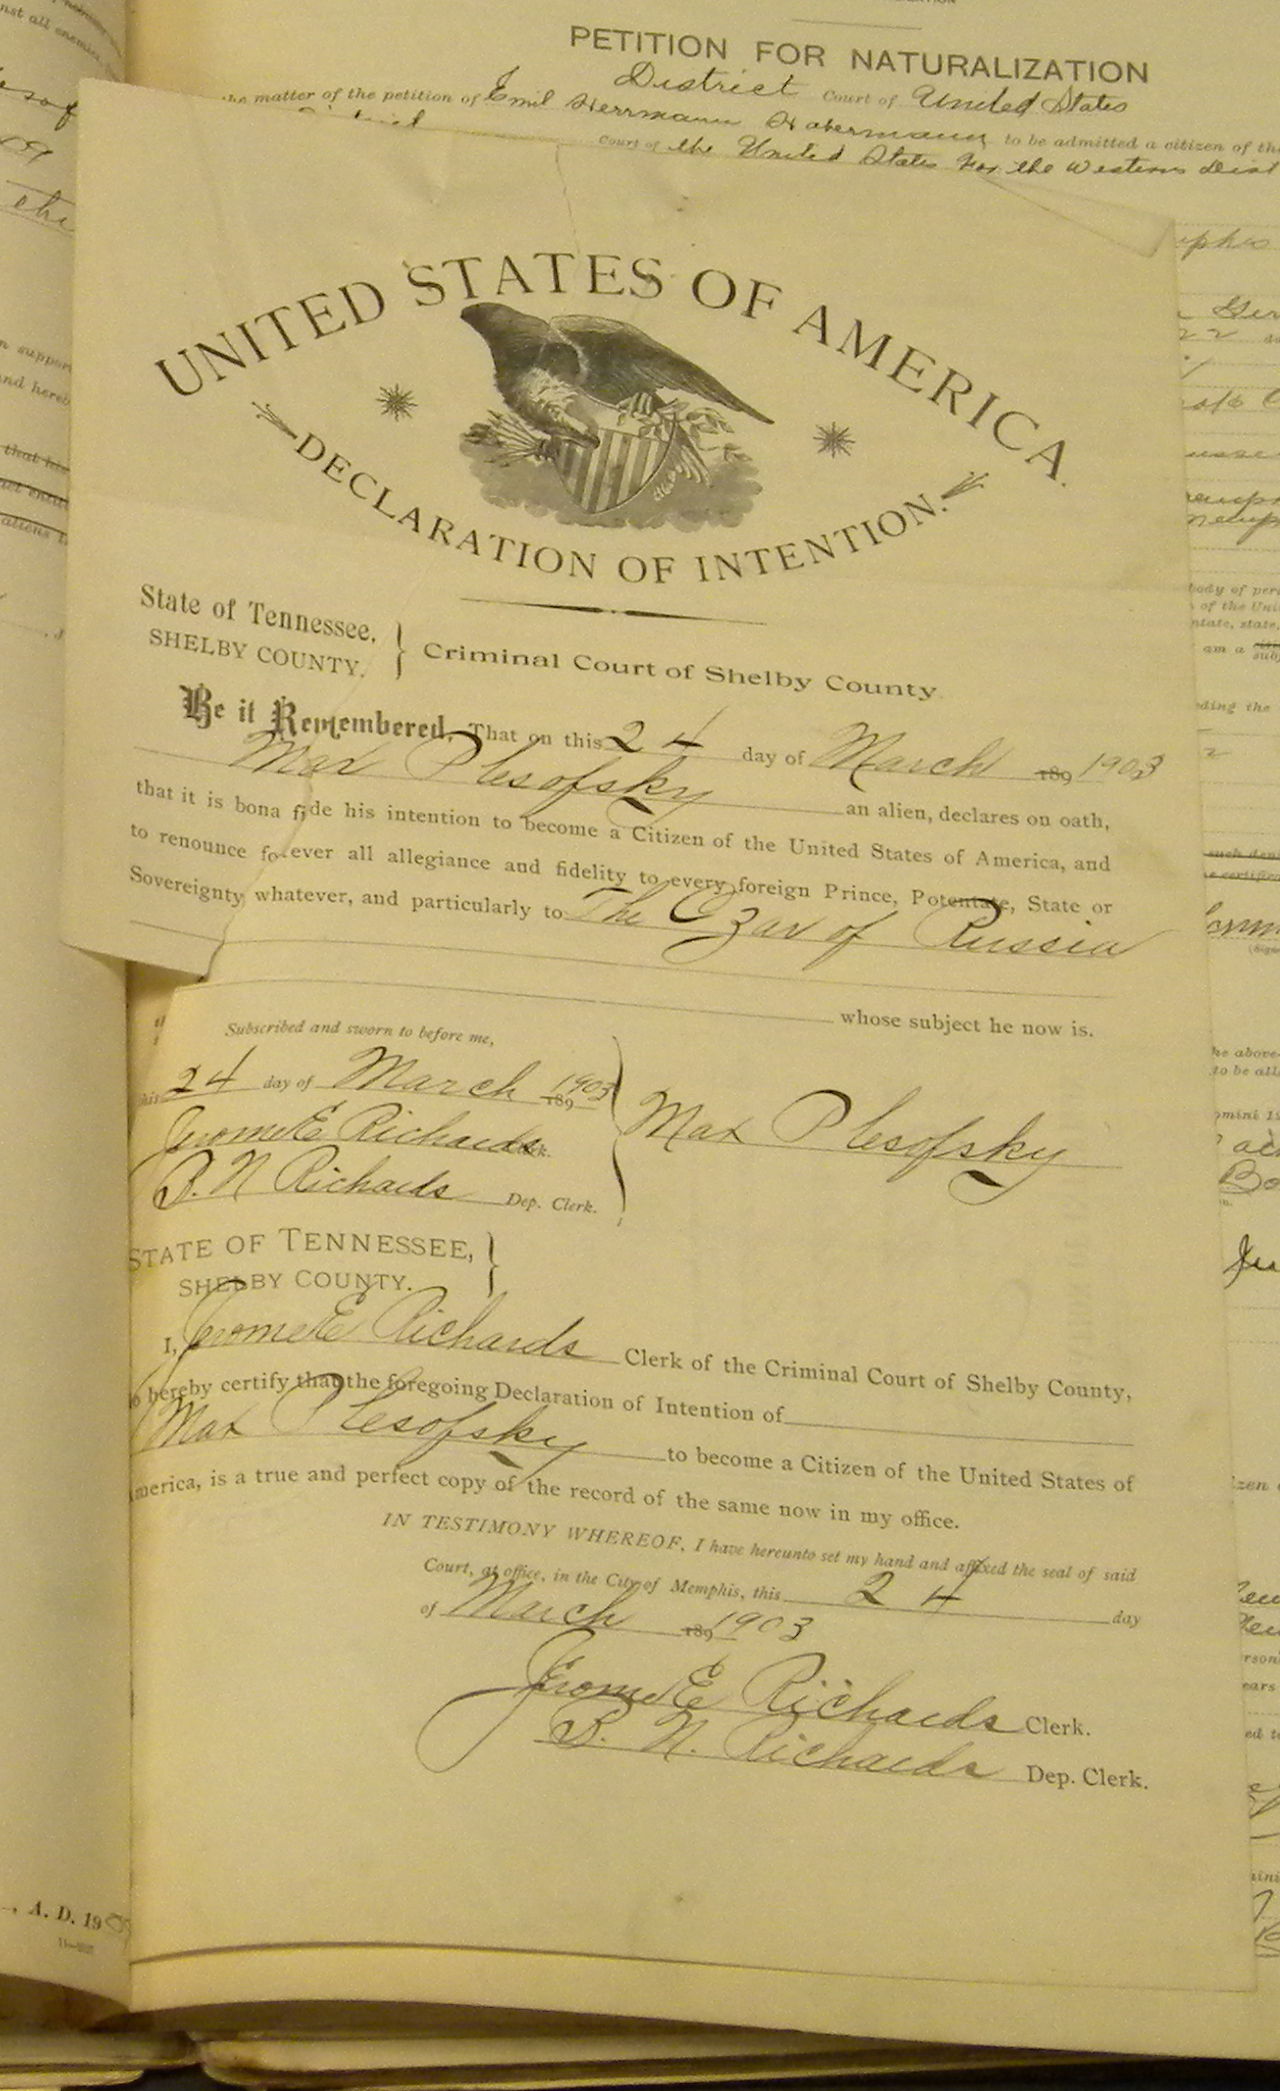 PETITION FOR NATURALIZATION
District Court of United States
the matter of the petition of Emil Herrmann Habermann to be admitted a citizen of the
Court of the United States For the Western Dist
UNITED STATES OF AMERICA.
DECLARATION OF INTENTION.
State of Tennessee,
SHELBY COUNTY.
Criminal Court of Shelby County
Be it Remembered, That on this 24 day of March 189 1903
Max Plesofsky an alien, declares on oath,
that it is bona fide his intention to become a Citizen of the United States of America, and
to renounce forever all allegiance and fidelity to every foreign Prince, Potentate, State or
Sovereignty whatever, and particularly to The Czar of Russia
whose subject he now is.
Subscribed and sworn to before me,
this 24 day of March 189 1903
Jerome E Richards Clerk.
B. N Richards Dep. Clerk.
Max Plesofsky
STATE OF TENNESSEE,
SHELBY COUNTY.
I, Jerome E Richards Clerk of the Criminal Court of Shelby County,
o hereby certify that the foregoing Declaration of Intention of
Max Plesofsky to become a Citizen of the United States of
America, is a true and perfect copy of the record of the same now in my office.
IN TESTIMONY WHEREOF, I have hereunto set my hand and affixed the seal of said
Court, at office, in the City of Memphis, this 24 day
of March 189 1903
Jerome E Richards Clerk.
B. N. Richards Dep. Clerk.
A. D. 19